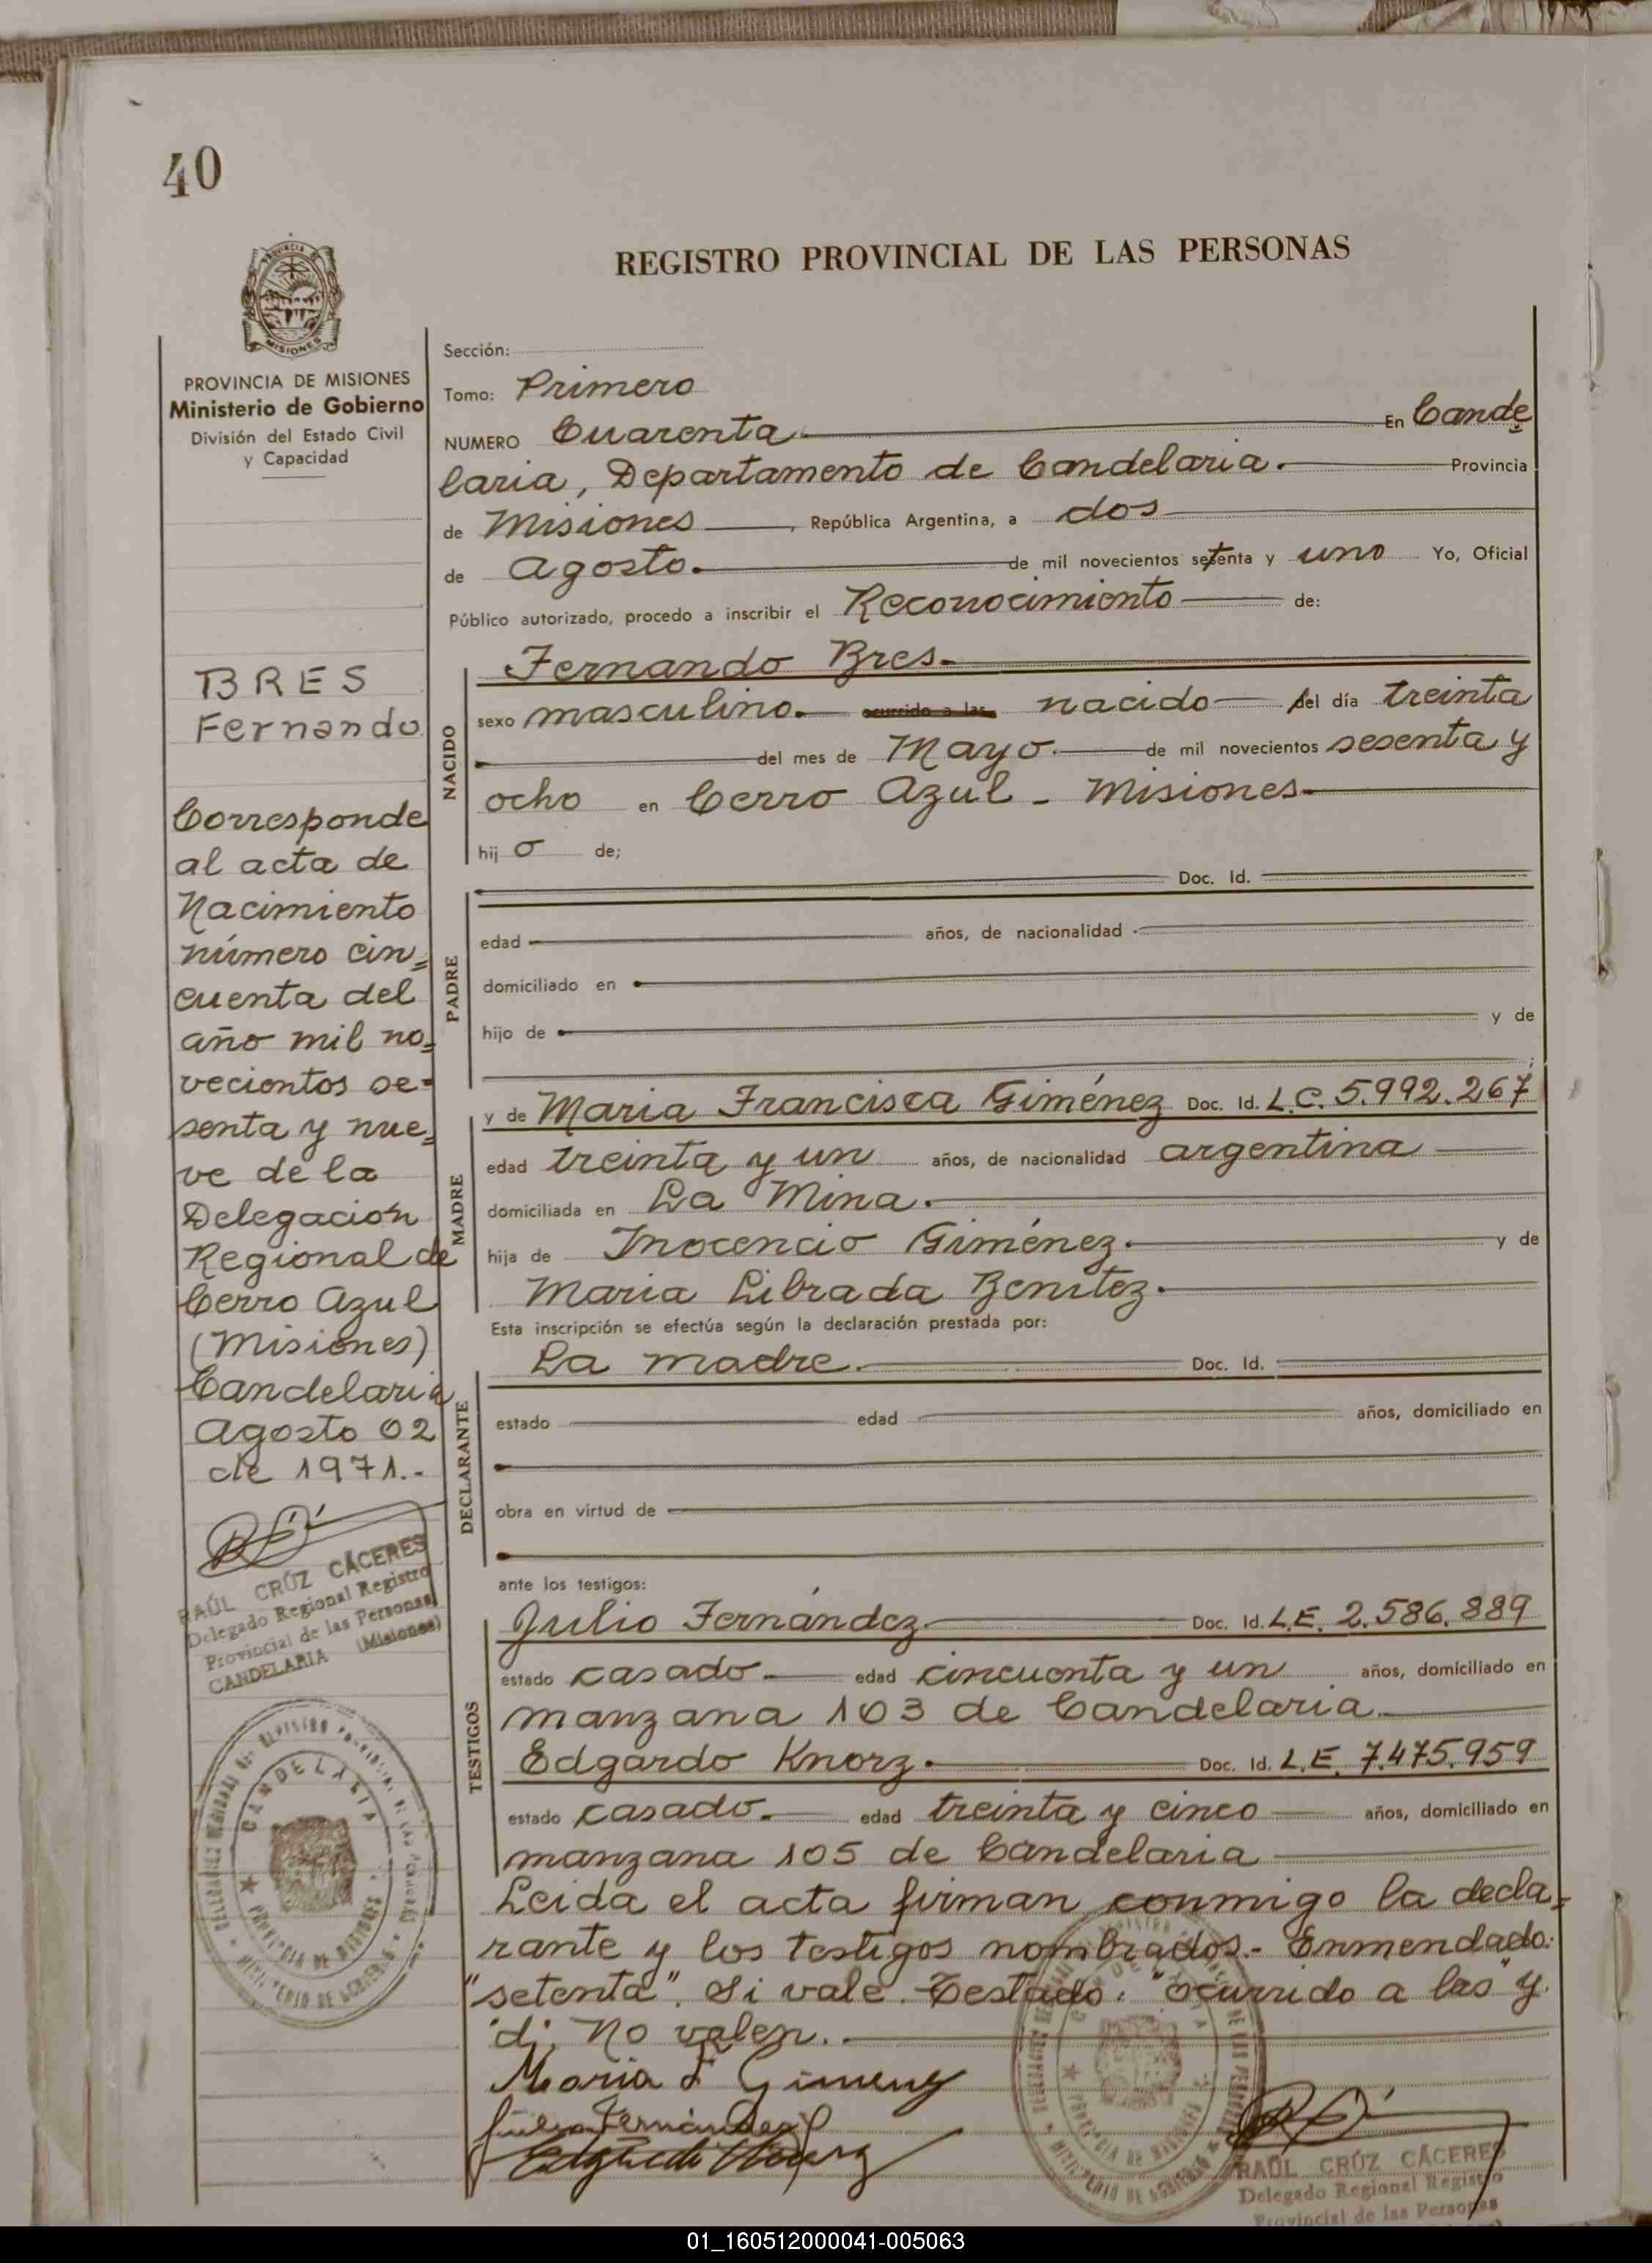 40
REGISTRO PROVINCIAL DE LAS PERSONAS
PROVINCIA
MISIONES
PROVINCIA DE MISIONES
Ministerio de Gobierno
División del Estado Civil
y Capacidad
BRES
Fernando
Corresponde
al acta de
Nacimiento
número cin=
cuenta del
año mil no=
vecientos se=
senta y nue=
ve de la
Delegación
Regional de
Cerro Azul
(Misiones)
Candelaria
Agosto 02
de 1971.-
RAÚL CRÚZ CÁCERES
Delegado Regional Registro
Provincial de las Personas
CANDELARIA (Misiones)
CANDELARIA
PROVINCIA DE MISIONES
Sección:
Tomo: Primero
NUMERO Cuarenta. En Cande
laria, Departamento de Candelaria. Provincia
de Misiones, República Argentina, a dos
de Agosto. de mil novecientos setenta y uno Yo, Oficial
Público autorizado, procedo a inscribir el Reconocimiento de:
NACIDO
Fernando Bres.
sexo masculino. ocurrido a las nacido del día treinta
del mes de Mayo. de mil novecientos sesenta y
ocho en Cerro Azul - Misiones
hij o de;
PADRE
Doc. Id.
edad años, de nacionalidad
domiciliado en
hijo de y de
;
MADRE
y de Maria Francisca Giménez Doc. Id. L.C. 5.992.267
edad treinta y un años, de nacionalidad argentina
domiciliada en La Mina.
hija de Inocencio Giménez. y de
Maria Librada Benitez.
Esta inscripción se efectúa según la declaración prestada por:
DECLARANTE
La madre. Doc. Id.
estado edad años, domiciliado en
obra en virtud de
ante los testigos:
TESTIGOS
Julio Fernández Doc. Id. L.E. 2.586.889
estado casado. edad cincuenta y un años, domiciliado en
manzana 103 de Candelaria
Edgardo Knorz. Doc. Id. L.E. 7.475.959
estado casado. edad treinta y cinco años, domiciliado en
manzana 105 de Candelaria
Leida el acta firman conmigo la decla=
rante y los testigos nombrados.- Enmendado:
"setenta". Si vale. Testado: "ocurrido a las" y
"d". No valen.
Maria F Gimenez
Julio Fernández
RAÚL CRÚZ CÁCERES
Delegado Regional Registro
Provincial de las Personas
01_160512000041-005063